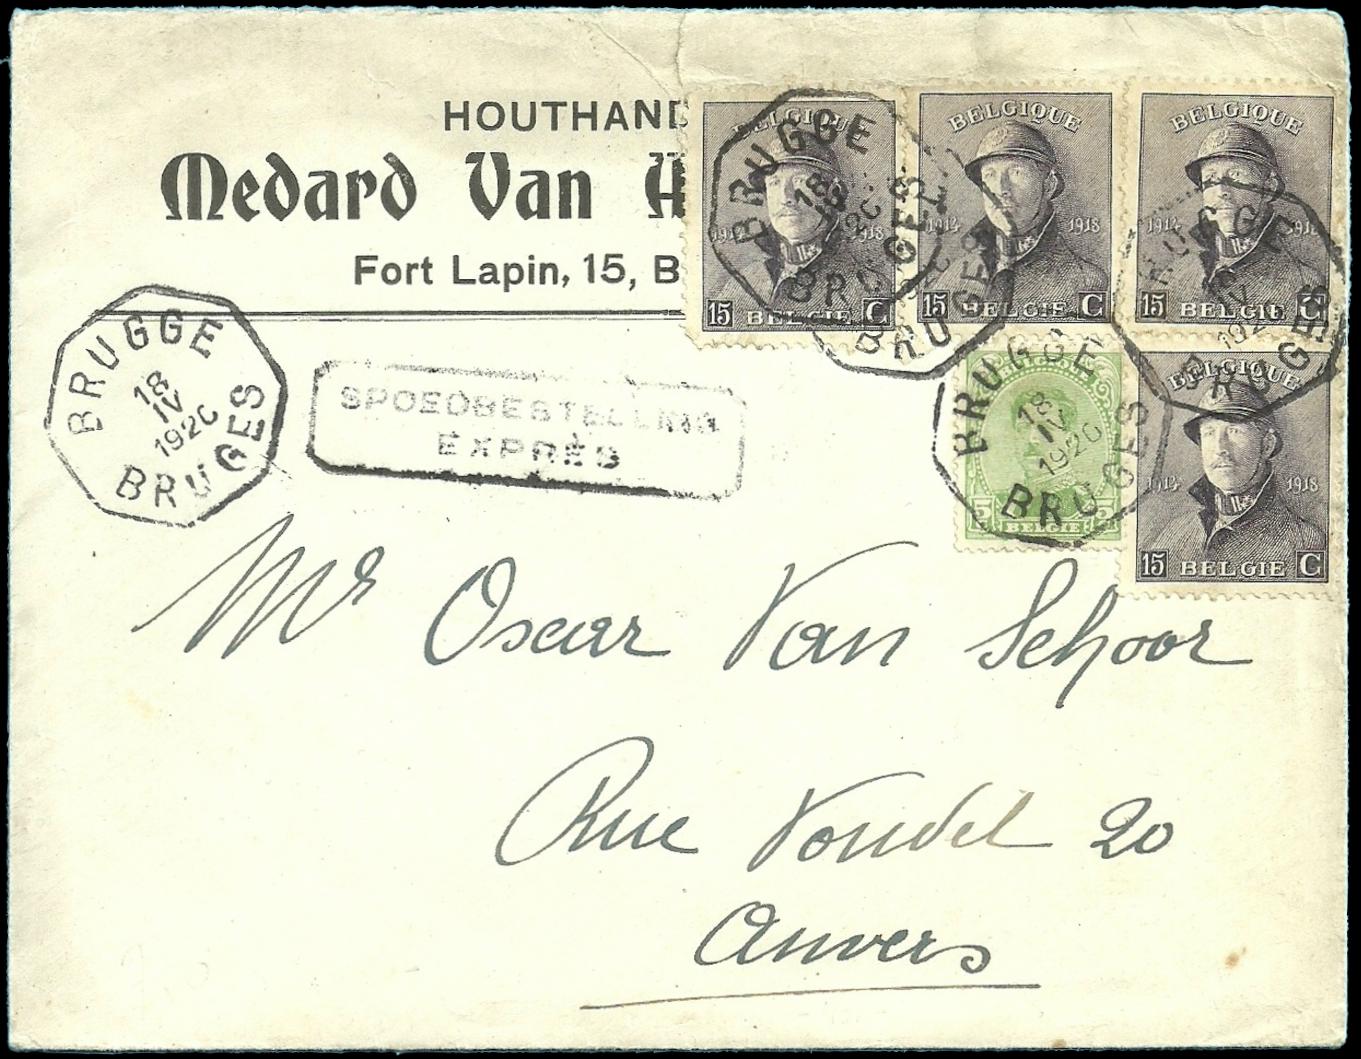 HOUTHAND
Medard Van
Fort Lapin, 15, B
BELGIQUE
1914 1918
15 BELGIE C
BELGIQUE
1914 1918
15 BELGIE C
BELGIQUE
1914 1918
15 BELGIE C
BELGIQUE
1914 1918
15 BELGIE C
5 BELGIE 5
BRUGGE
18
IV
1920
BRUGES
BRUGGE
18
IV
1920
BRUGES
BRUGGE
18
IV
1920
BRUGES
BRUGGE
IV
1920
BRUGES
BRUGES
SPOEDBESTELLING
EXPRÈS
Mr Oscar Van Schoor
Rue Vondel 20
Anvers